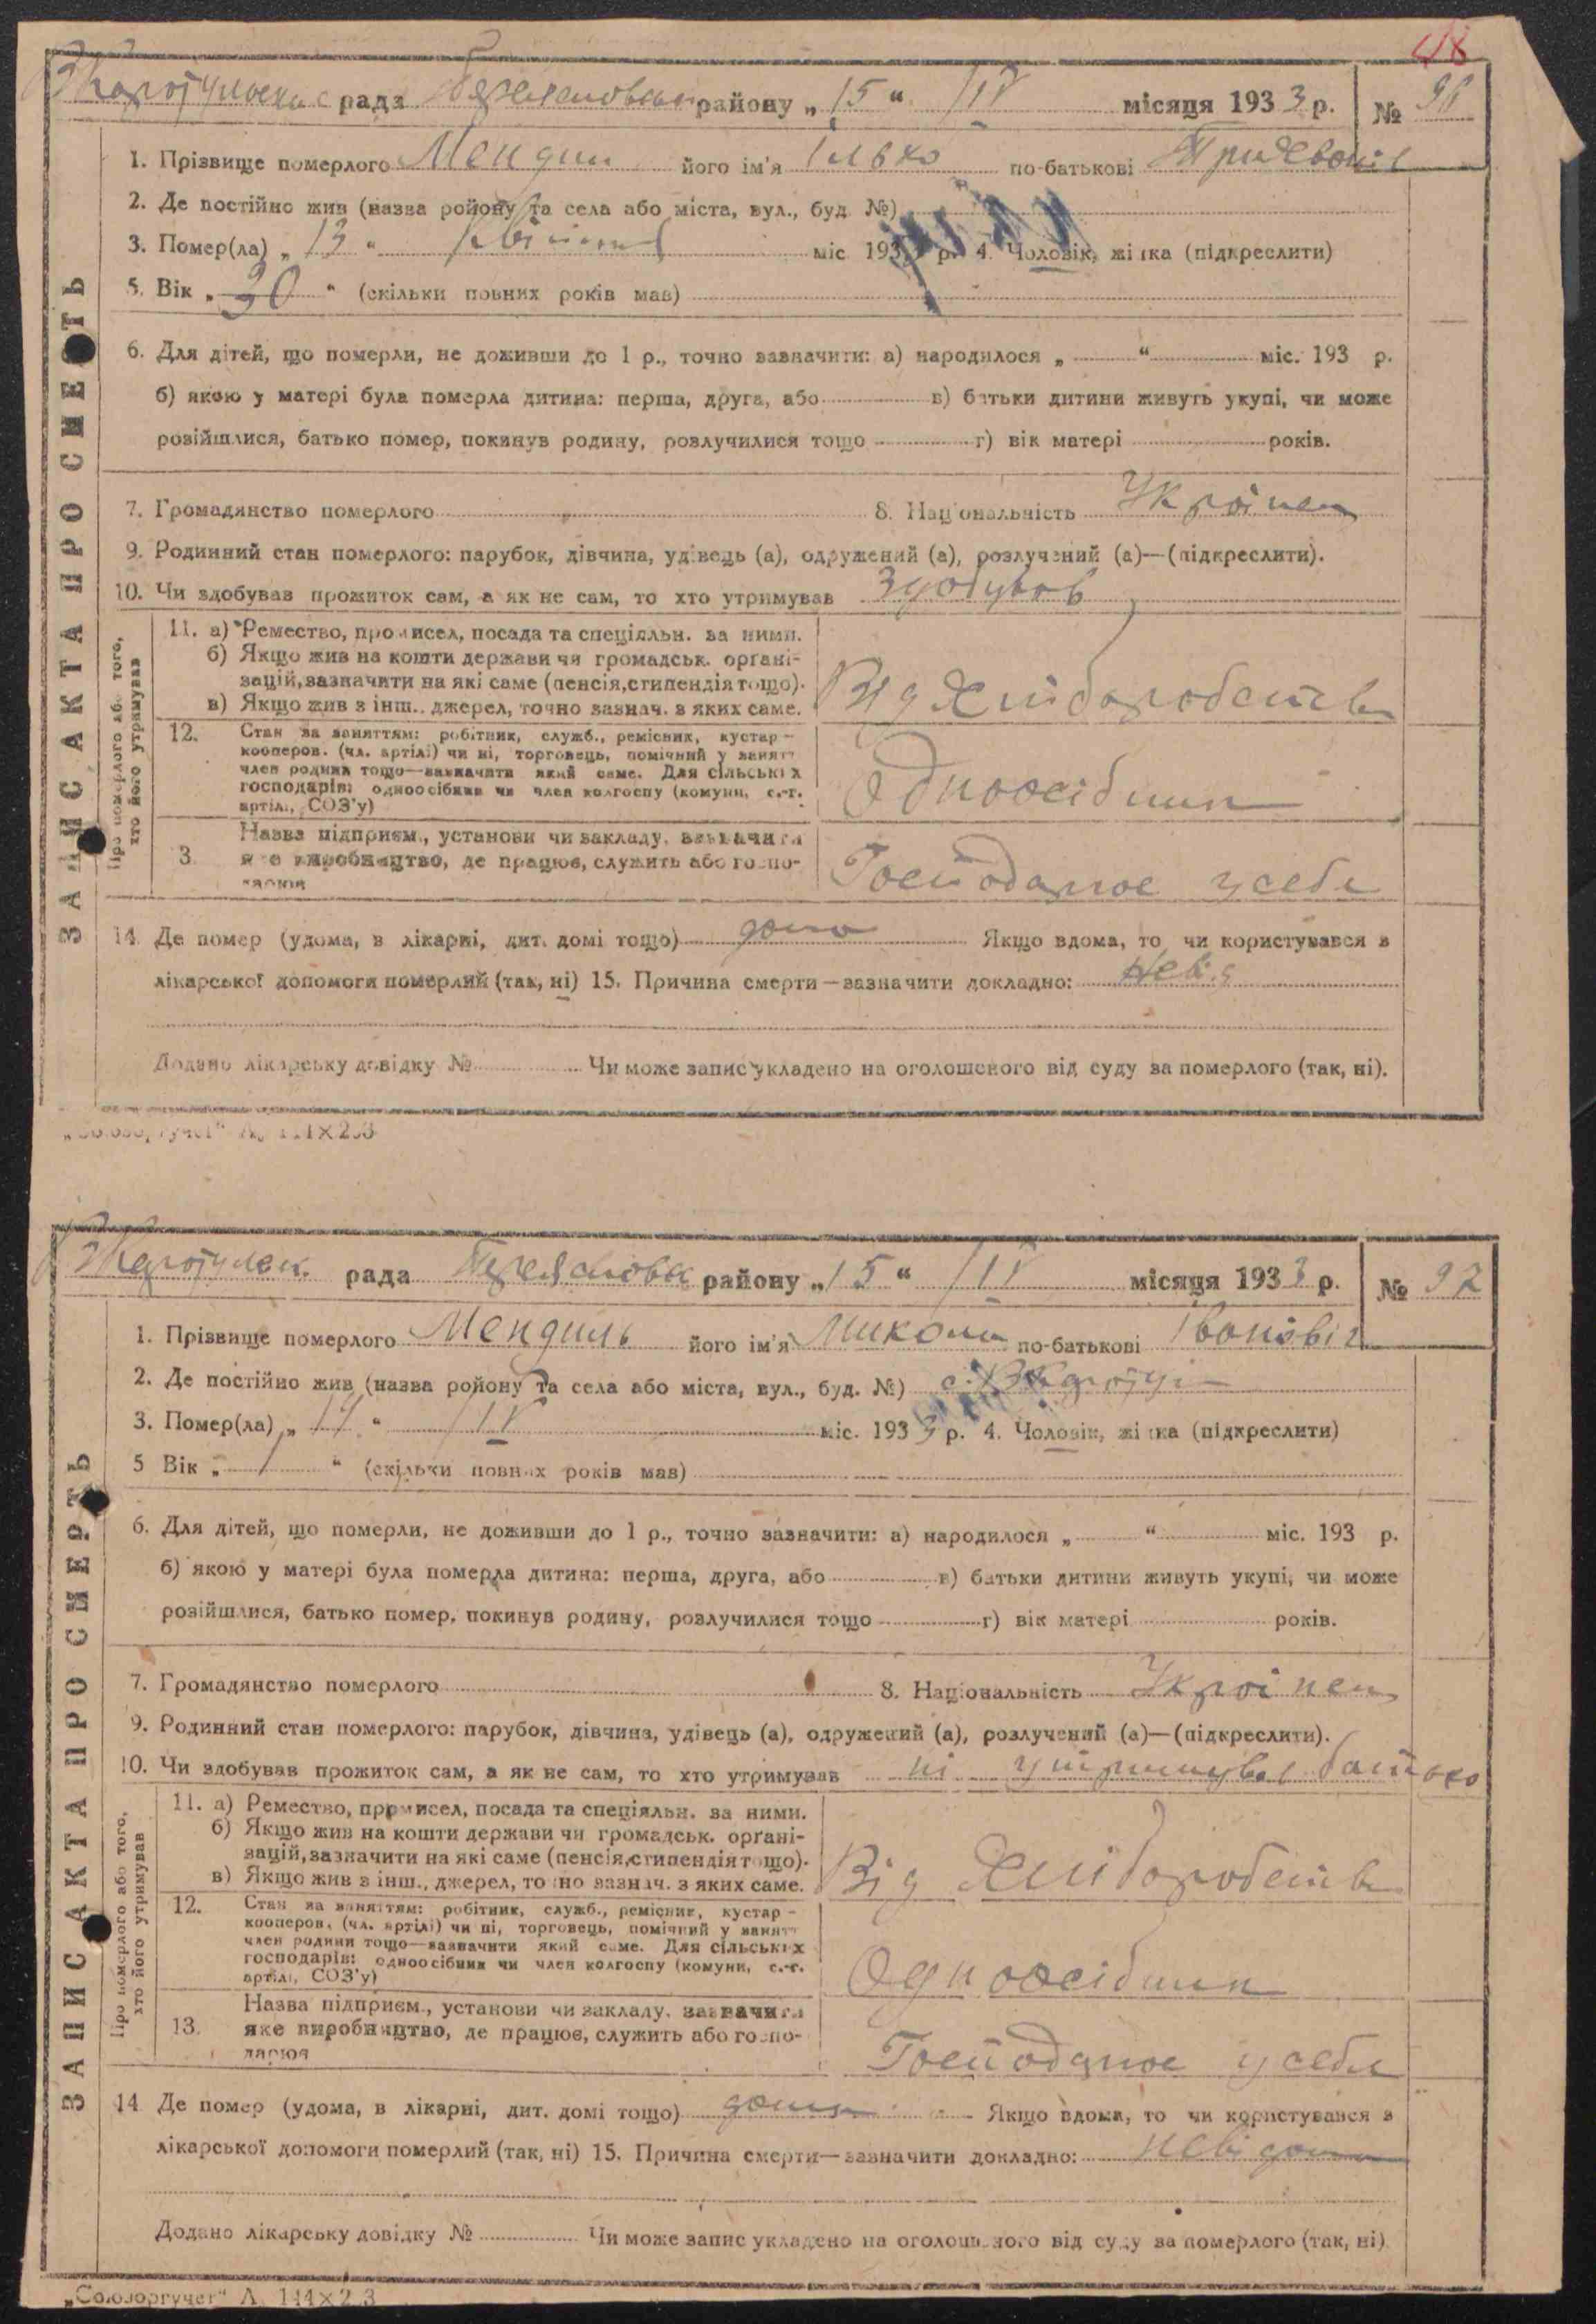 48
рада району „15“ IV місяця 1933 р. № 96
1. Прізвище померлого Мендиль його ім'я Ілько по-батькові
2. Де постійно жив (назва ройону та села або міста, вул., буд. №)
3. Помер(ла) „13“ квітня міс. 193 р. 4. Чоловік, жінка (підкреслити)
5. Вік „30“ (скільки повних років мав)
6. Для дітей, що померли, не доживши до 1 р., точно зазначити: а) народилося „ “ міс. 193 р.
б) якою у матері була померла дитина: перша, друга, або в) батьки дитини живуть укупі, чи може
розійшлися, батько помер, покинув родину, розлучилися тощо г) вік матері років.
7. Громадянство померлого 8. Національність Украінец
9. Родинний стан померлого: парубок, дівчина, удівець (а), одружений (а), розлучений (а)—(підкреслити).
10. Чи здобував прожиток сам, а як не сам, то хто утримував Здобував
ЗАПИС АКТА ПРО СМЕРТЬ
Про померлого або того,
хто його утримував
11. а) Ремество, промисел, посада та спеціяльн. за ними.
б) Якщо жив на кошти держави чи громадськ. органі-
зацій, зазначити на які саме (пенсія, стипендія тощо).
в) Якщо жив з інш.. джерел, точно зазнач. з яких саме.
Від Хліборобств
12. Стан за заняттям: робітник, служб., ремісник, кустар-
кооперов. (чл. артілі) чи ні, торговець, помічний у занятт
член родини тощо—зазначити який саме. Для сільських
господарів: одноосібник чи член колгоспу (комуни, с.-г.
артілі, СОЗ'у)
Одноосібник
3. Назва підприєм., установи чи закладу, зазначити
яке виробництво, де працює, служить або госпо-
дарює
Господарює у себе
14. Де помер (удома, в лікарні, дит. домі тощо) дома Якщо вдома, то чи користувався з
лікарської допомоги померлий (так, ні) 15. Причина смерти—зазначити докладно: Невід
Додано лікарську довідку № Чи може запис укладено на оголошеного від суду за померлого (так, ні).
рада району „15“ IV місяця 1933 р. № 97
1. Прізвище померлого Мендиль його ім'я Микола по-батькові Іванович
2. Де постійно жив (назва ройону та села або міста, вул., буд. №) с.
3. Помер(ла) „14“ IV міс. 1933 р. 4. Чоловік, жінка (підкреслити)
5 Вік „1“ (скільки повних років мав)
6. Для дітей, що померли, не доживши до 1 р., точно зазначити: а) народилося „ “ міс. 193 р.
б) якою у матері була померла дитина: перша, друга, або в) батьки дитини живуть укупі, чи може
розійшлися, батько помер, покинув родину, розлучилися тощо г) вік матері років.
7. Громадянство померлого 8. Національність Украінец
9. Родинний стан померлого: парубок, дівчина, удівець (а), одружений (а), розлучений (а)—(підкреслити).
10. Чи здобував прожиток сам, а як не сам, то хто утримував ні утримував батько
ЗАПИС АКТА ПРО СМЕРТЬ
Про померлого або того,
хто його утримував
11. а) Ремество, промисел, посада та спеціяльн. за ними.
б) Якщо жив на кошти держави чи громадськ. органі-
зацій, зазначити на які саме (пенсія, стипендія тощо).
в) Якщо жив з інш., джерел, точно зазнач. з яких саме.
Від Хліборобств
12. Стан за заняттям: робітник, служб., ремісник, кустар-
кооперов. (чл. артілі) чи ні, торговець, помічний у занятт
член родини тощо—зазначити який саме. Для сільських
господарів: одноосібник чи член колгоспу (комуни, с.-г.
артілі, СОЗ'у)
Одноосібник
13. Назва підприєм., установи чи закладу, зазначити
яке виробництво, де працює, служить або госпо-
дарює
Господарює у себе
14 Де помер (удома, в лікарні, дит. домі тощо) дома Якщо вдома, то чи користувався з
лікарської допомоги померлий (так, ні) 15. Причина смерти—зазначити докладно: невідома
Додано лікарську довідку № Чи може запис укладено на оголошеного від суду за померлого (так, ні)
„Союзоргучет“